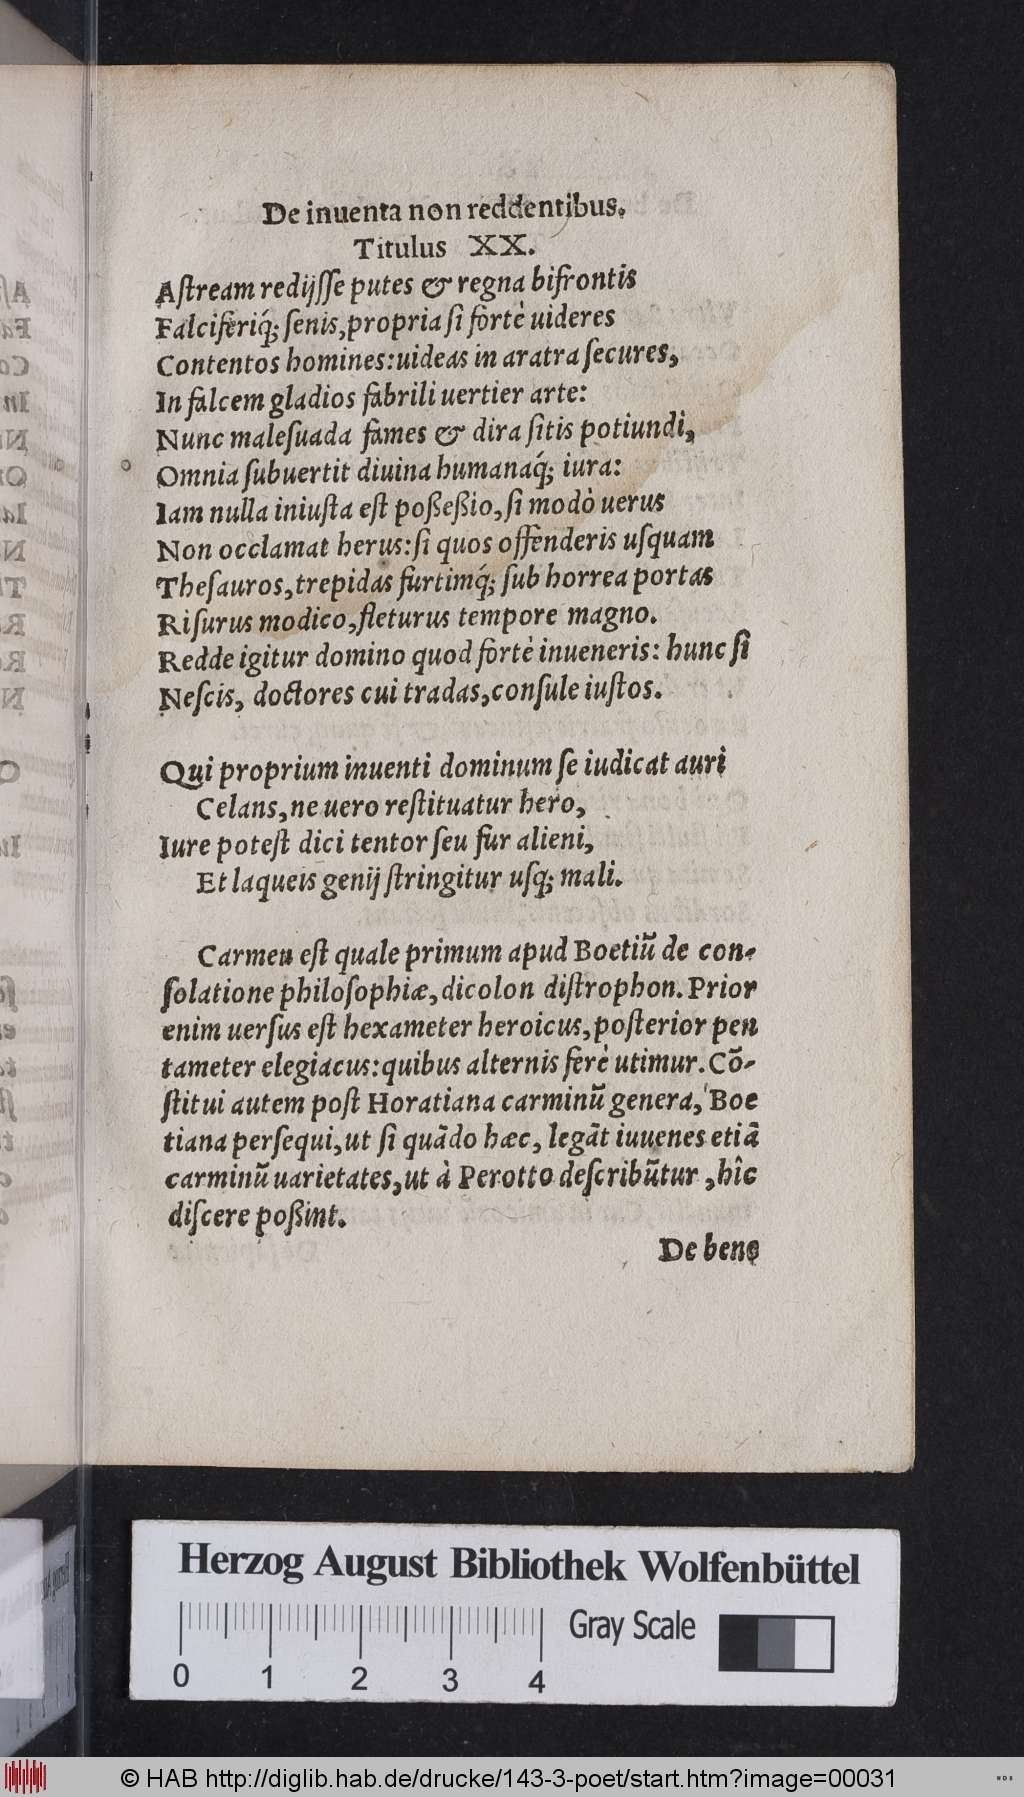 De inuenta non reddentibus.
Titulus XX.
Aſtream redijſſe putes & regna bifrontis
Falciferiq́; ſenis, propria ſi fortè uideres
Contentos homines: uideas in aratra ſecures,
In falcem gladios fabrili uertier arte:
Nunc maleſuada fames & dira ſitis potiundi,
Omnia ſubuertit diuina humanaq́; iura:
Iam nulla iniuſta eſt poßeßio, ſi modò uerus
Non occlamat herus: ſi quos offenderis uſquam
Theſauros, trepidas furtimq́; ſub horrea portas
Riſurus modico, fleturus tempore magno.
Redde igitur domino quod fortè inueneris: hunc ſi
Neſcis, doctores cui tradas, conſule iuſtos.
Qui proprium inuenti dominum ſe iudicat auri
Celans, ne uero reſtituatur hero,
Iure poteſt dici tentor ſeu fur alieni,
Et laqueis genij ſtringitur uſq; mali.
Carmen eſt quale primum apud Boetiũ de con-
ſolatione philoſophiæ, dicolon diſtrophon. Prior
enim uerſus eſt hexameter heroicus, poſterior pen
tameter elegiacus: quibus alternis ferè utimur. Cõ-
ſtitui autem poſt Horatiana carminũ genera, Boe
tiana perſequi, ut ſi quãdo hæc, legãt iuuenes etiã
carminũ uarietates, ut à Perotto deſcribũtur, hîc
diſcere poßint.
De bene
Herzog August Bibliothek Wolfenbüttel
0 1 2 3 4
Gray Scale
© HAB http://diglib.hab.de/drucke/143-3-poet/start.htm?image=00031